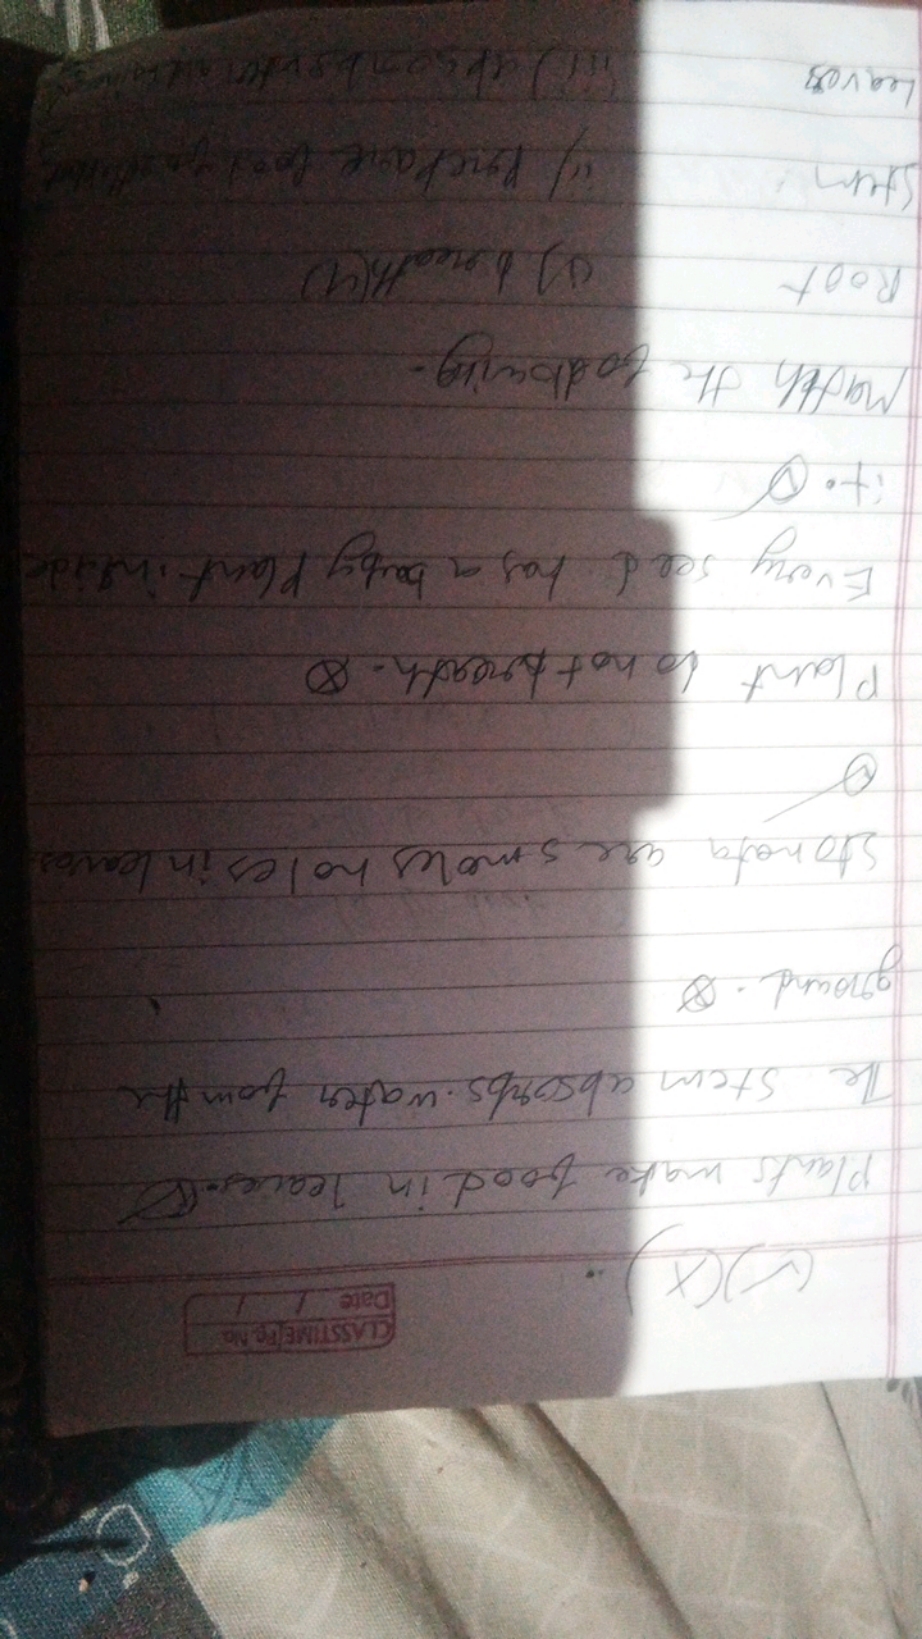 CLASSTIME Pg. No.
Date / /
(✓)(X)
Plants make food in leaves. ✓
The stem absorbs water from the
ground. ⊗
Stomata are smoles holes in leaves
✓
Plant do not breath. ⊗
Every seed has a baby Plant inside
it. ✓
Match the following.
Root i) breath(4)
Stem ii) prepare food
Leaves iii) absorb